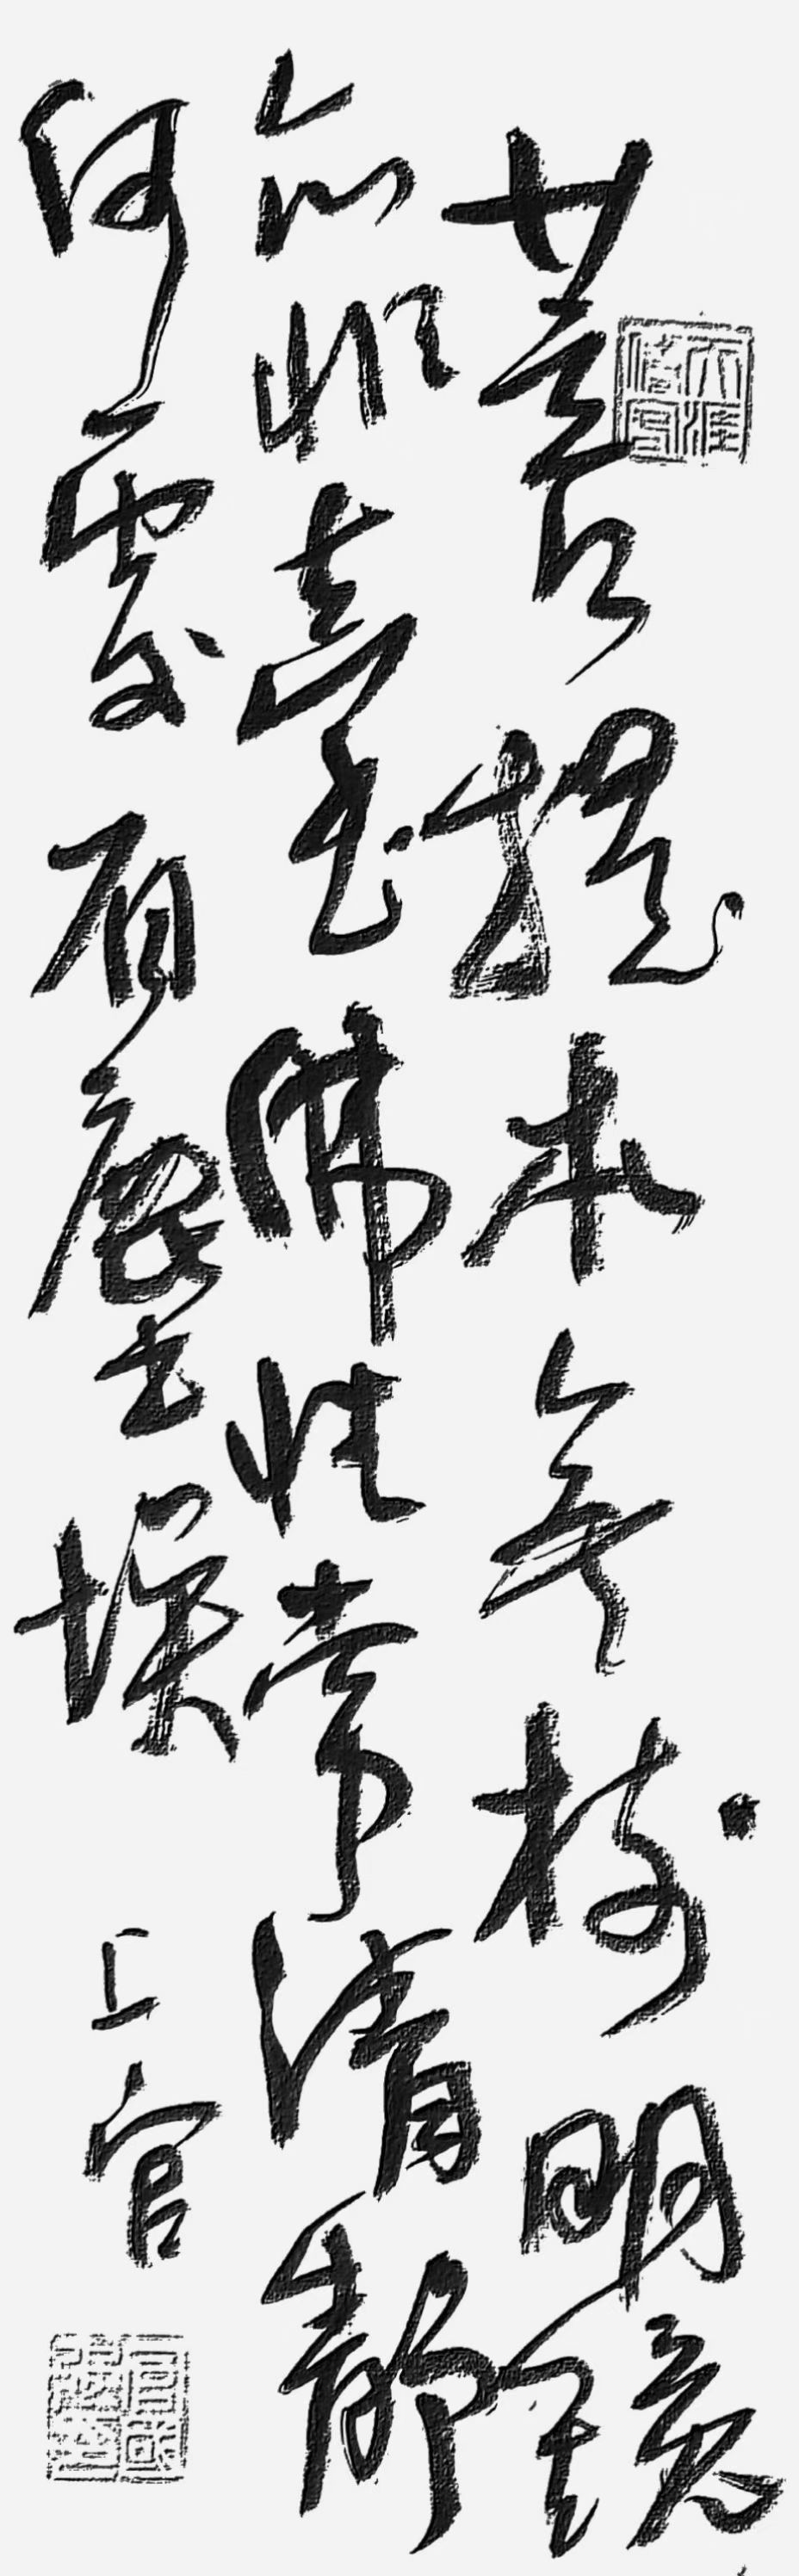 菩提本無樹明鏡
亦非臺佛性常清靜
何處有塵埃
上官